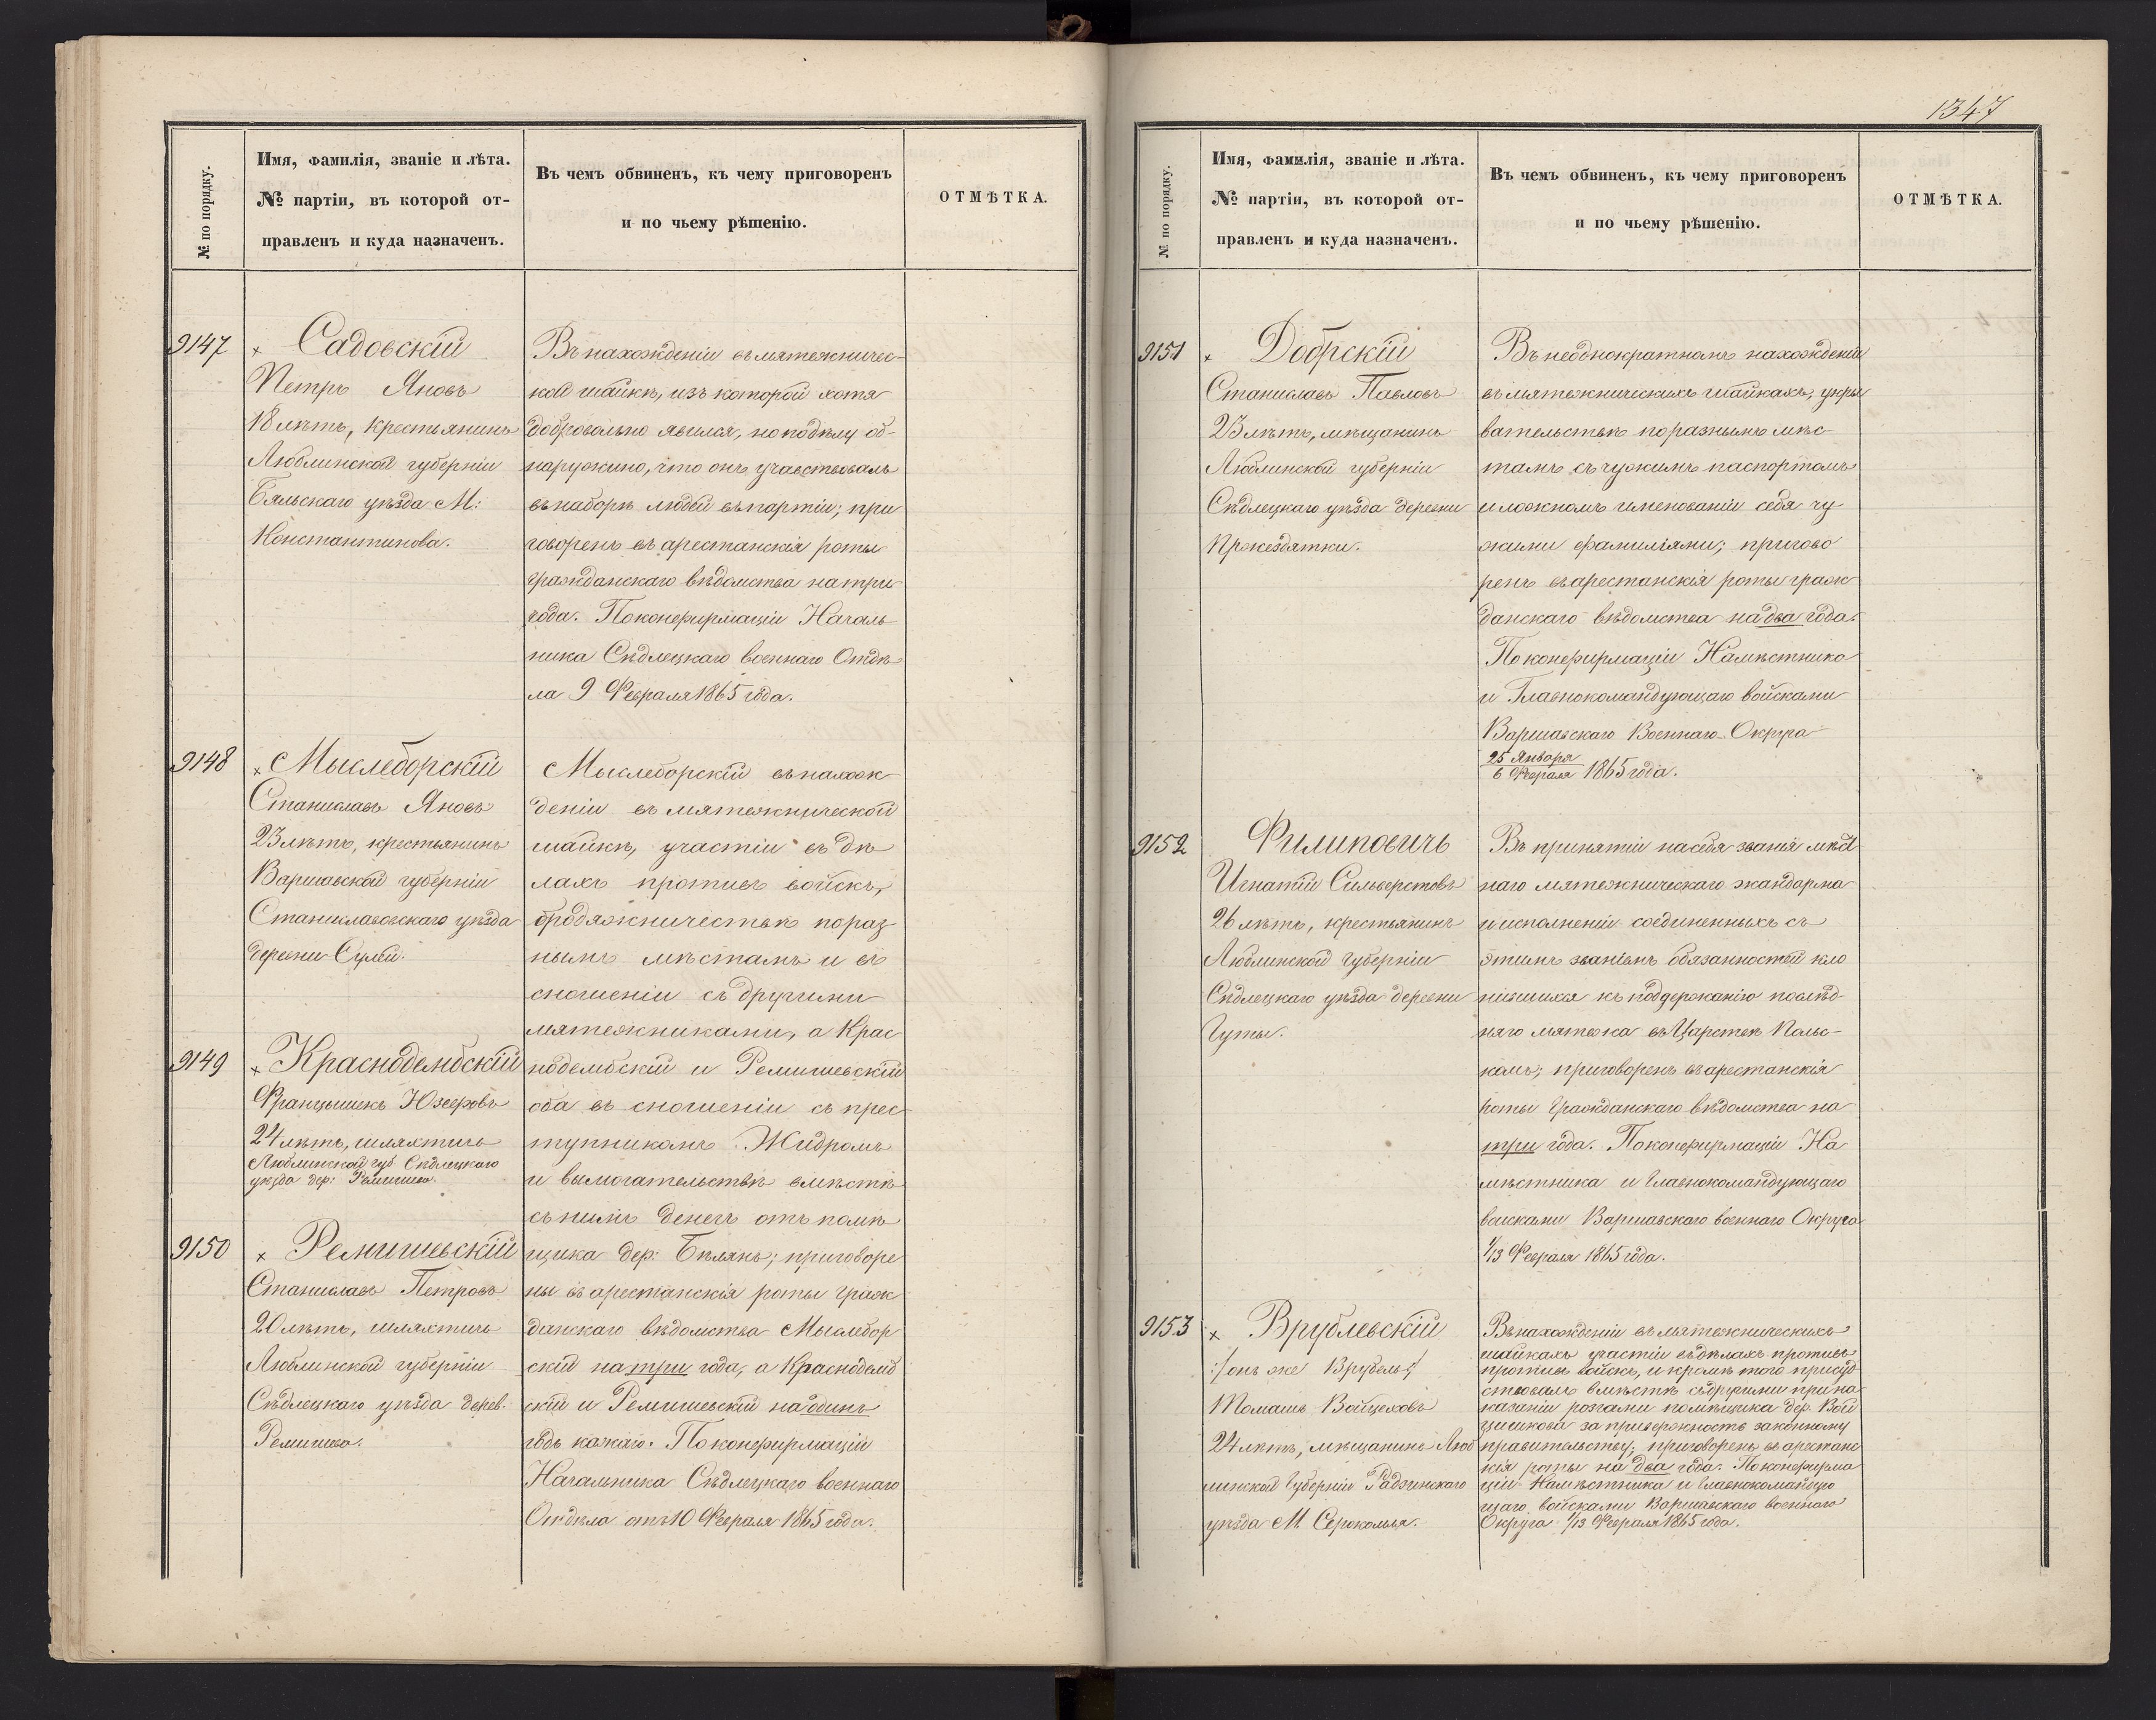 № по порядку.
Имя, фамилія, званіе и лѣта.
№ партіи, въ которой от-
правленъ и куда назначенъ.
Въ чемъ обвиненъ, къ чему приговоренъ
и по чьему рѣшенію.
ОТМѢТКА.
9147
× Садовскій
Петръ Яновъ
18 лѣтъ, крестьянинъ
Люблинской губерніи
Бяльскаго уѣзда М:
Константинова.
Въ нахожденіи въ мятежничес-
кой шайкѣ, изъ которой хотя
добровольно явился, но по дѣлу об-
наружино, что онъ участвовалъ
въ наборѣ людей въ партіи; при
говоренъ въ арестанскія роты
гражданскаго вѣдомства на три
года. По конфирмаціи Началь-
ника Сѣдлецкаго военнаго Отдѣ-
ла 9 Февраля 1865 года.
9148
× Мыслеборскій
Станиславъ Яновъ
23 лѣтъ, крестьянинъ
Варшавской губерніи
Станиславовскаго уѣзда
деревни Сулей.
Мыслеборскій въ нахож-
деніи въ мятежнической
шайкѣ, участіи въ дѣ
лахъ противъ войскъ,
бродяжничествѣ по раз
нымъ мѣстамъ и въ
сношеніи съ другими
мятежниками, а Крас
нодембскій и Ремишевскій
оба въ сношеніи съ прес
тупникомъ Жидромъ
и вымогательствѣ вмѣстѣ
съ нимъ денегъ отъ помѣ
щика дер: Бѣлянъ; приговоре
ны въ арестанскія роты граж
данскаго вѣдомства Мыслебор
скій на три года, а Краснодемб
скій и Ремишевскій на одинъ
годъ каждаго. По конфирмаціи
Начальника Сѣдлецкаго военнаго
Отдѣла отъ 10 Февраля 1865 года.
9149
× Краснодембскій
Францышекъ Юзефовъ
24 лѣтъ, шляхтичъ
Люблинской губ. Сѣдлецкаго
уѣзда дер: Ремишева.
9150
× Ремишевскій
Станиславъ Петровъ
20 лѣтъ, шляхтичъ
Люблинской губерніи
Сѣдлецкаго уѣзда дерев.
Ремишево.
1347
№ по порядку.
Имя, фамилія, званіе и лѣта.
№ партіи, въ которой от-
правленъ и куда назначенъ.
Въ чемъ обвиненъ, къ чему приговоренъ
и по чьему рѣшенію.
ОТМѢТКА.
9151
× Добрскій
Станиславъ Павловъ
23 лѣтъ, мѣщанинъ
Люблинской губерніи
Сѣдлецкаго уѣзда деревни
Пржездятки.
Въ неоднократномъ нахожденіи
въ мятежническихъ шайкахъ, укры
вательствѣ по разнымъ мѣс-
тамъ съ чужимъ паспортомъ
и ложномъ именованіи себя чу
жими фамиліями; пригово
ренъ въ арестанскія роты граж
данскаго вѣдомства на два года.
По конфирмаціи Намѣстника
и Главнокомандующаго войсками
Варшавскаго Военнаго Округа
25 Января
6 Февраля 1865 года.
9152
Филиповичъ
Игнатій Сильверстовъ
26 лѣтъ, крестьянинъ
Люблинской губерніи
Сѣдлецкаго уѣзда деревни
Гуты.
Въ принятіи на себя званія мѣст
наго мятежническаго жандарма
и исполненіи соединенныхъ съ
этимъ званіемъ обязанностей кло
нившихся къ поддержанію послѣд-
няго мятежа въ Царствѣ Польс-
комъ; приговоренъ въ арестанскія
роты Гражданскаго вѣдомства на
три года. По конфирмаціи На
мѣстника и Главнокомандующаго
войсками Варшавскаго военнаго Округа
1/13 Февраля 1865 года.
9153
× Врублевскій
:/онъ же Врубель/:
Томашъ Войцеховъ
24 лѣтъ, мѣщанинъ Люб
линской Губерніи Радзинскаго
уѣзда М. Серокомля.
Въ нахожденіи въ мятежническихъ
шайкахъ участіи въ дѣлахъ противъ
противъ войскъ, и кромѣ того присуд
ствовалъ вмѣстѣ съ другими при на
казаніи розгами помѣщика дер. Вой
цишкова за приверженность законному
правительству; приговоренъ въ арестанс
кія роты на два года. По конфирма
ціи Намѣстника и Главнокомандую
щаго войсками Варшавскаго военнаго
Округа 1/13 Февраля 1865 года.